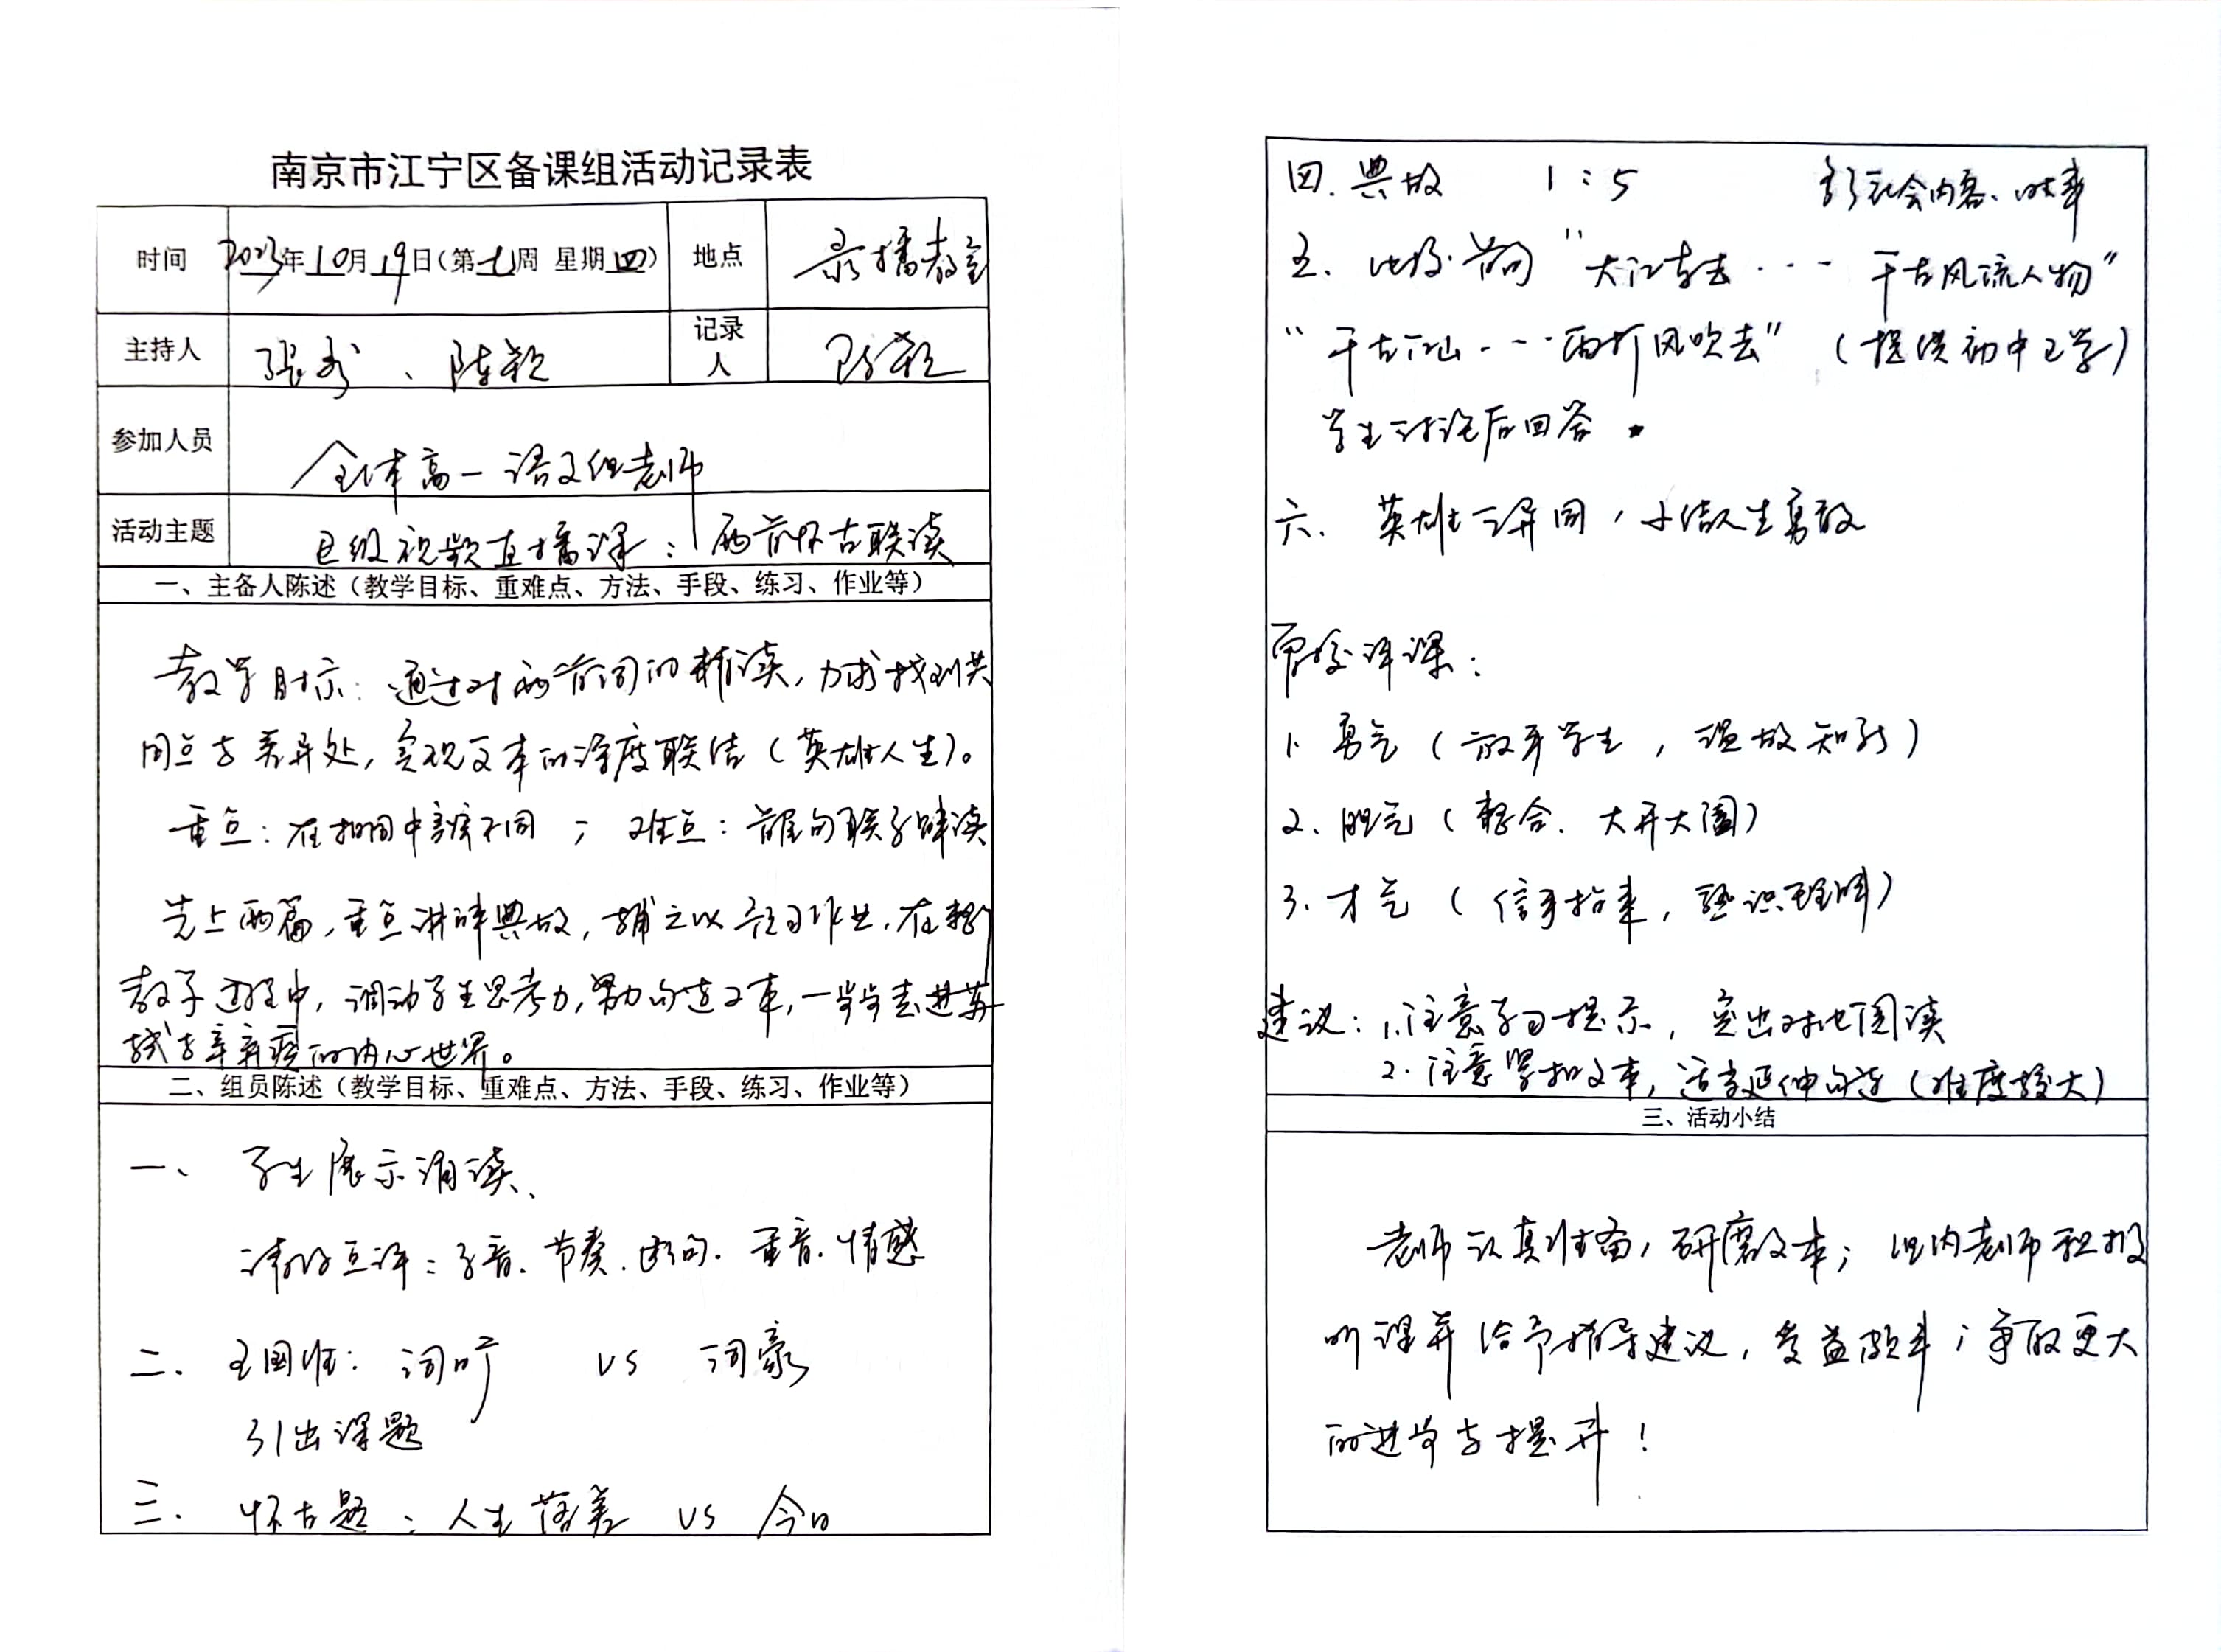 南京市江宁区备课组活动记录表
时间 2023年10月19日(第七周 星期四) 地点 录播教室
主持人 张 、陈颖 记录人 陈颖
参加人员 全体高一语文组老师
活动主题 区级视频直播课：两首怀古联读
一、主备人陈述（教学目标、重难点、方法、手段、练习、作业等）
教学目标：通过对两首词的精读，力求找到共
同点与差异处，实现文本的深度联结（英雄人生）。
重点：在相同中辨不同；难点：首尾句联系解读
先上两篇，重点讲解典故，辅之以预习作业，在整个
教学过程中，调动学生思考力，努力勾连文本，一步步走进苏
轼与辛弃疾的内心世界。
二、组员陈述（教学目标、重难点、方法、手段、练习、作业等）
一、 学生展示诵读、
请 互评：字音、节奏、断句、重音、情感
二、 王国维： 词 vs 词豪
引出课题
三、 怀古题：人生落差 vs 今日
四、典故 1：5 社会内容、时事
五、比较首句“大江东去 ··· 千古风流人物”
“千古江山 ··· 雨打风吹去”（提供初中已学）
学生讨论后回答。
六、 英雄之异同，小结人生勇敢
评课：
1、勇气（放手学生，温故知新）
2、胆气（整合、大开大阖）
3、才气（信手拈来，熟识理解）
建议：1、注意学习提示，突出对比阅读
2、注意紧扣文本，适当延伸勾连（难度较大）
三、活动小结
老师认真准备，研磨文本；组内老师积极
听课并给予指导建议，受益颇丰；争取更大
的进步与提升！